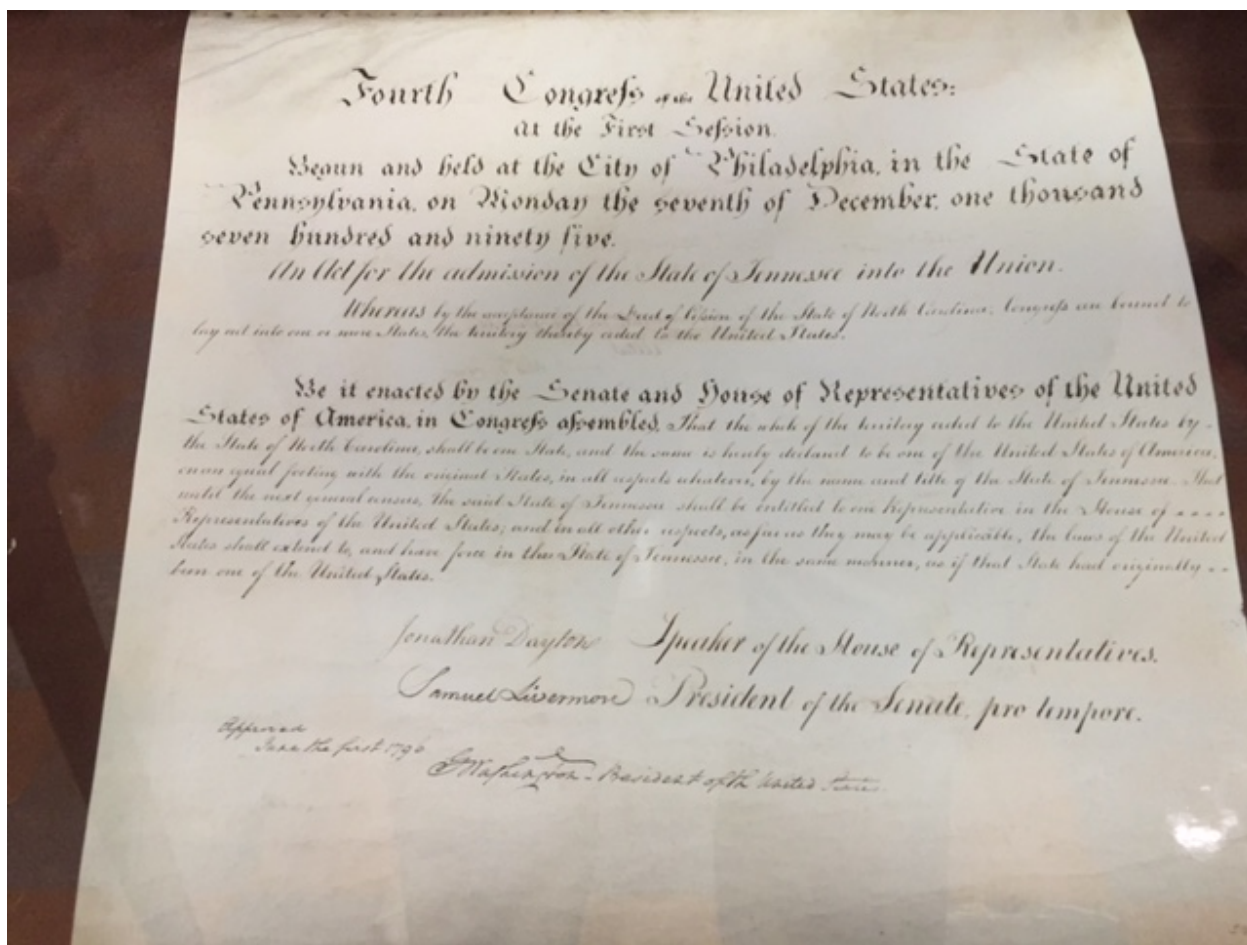 Fourth Congress of the United States:
At the First Session.
Begun and held at the City of Philadelphia, in the State of
Pennsylvania, on Monday the seventh of December, one thousand
seven hundred and ninety five.
An Act for the admission of the State of Tennessee into the Union.
Whereas by the acceptance of the Deed of Cession of the State of North Carolina, Congress are bound to
lay out into one or more States, the territory thereby ceded to the United States.
Be it enacted by the Senate and House of Representatives of the United
States of America, in Congress assembled, That the whole of the territory ceded to the United States by
the State of North Carolina, shall be one State, and the same is hereby declared to be one of the United States of America,
on an equal footing with the original States, in all respects whatever, by the name and title of the State of Tennessee. That
until the next general census, the said State of Tennessee shall be entitled to one Representative in the House of
Representatives of the United States; and in all other respects, as far as they may be applicable, the laws of the United
States shall extend to, and have force in the State of Tennessee, in the same manner, as if that State had originally
been one of the United States.
Jonathan Dayton Speaker of the House of Representatives.
Samuel Livermore President of the Senate, pro tempore.
Approved
June the first 1796
G Washington - President of the United States